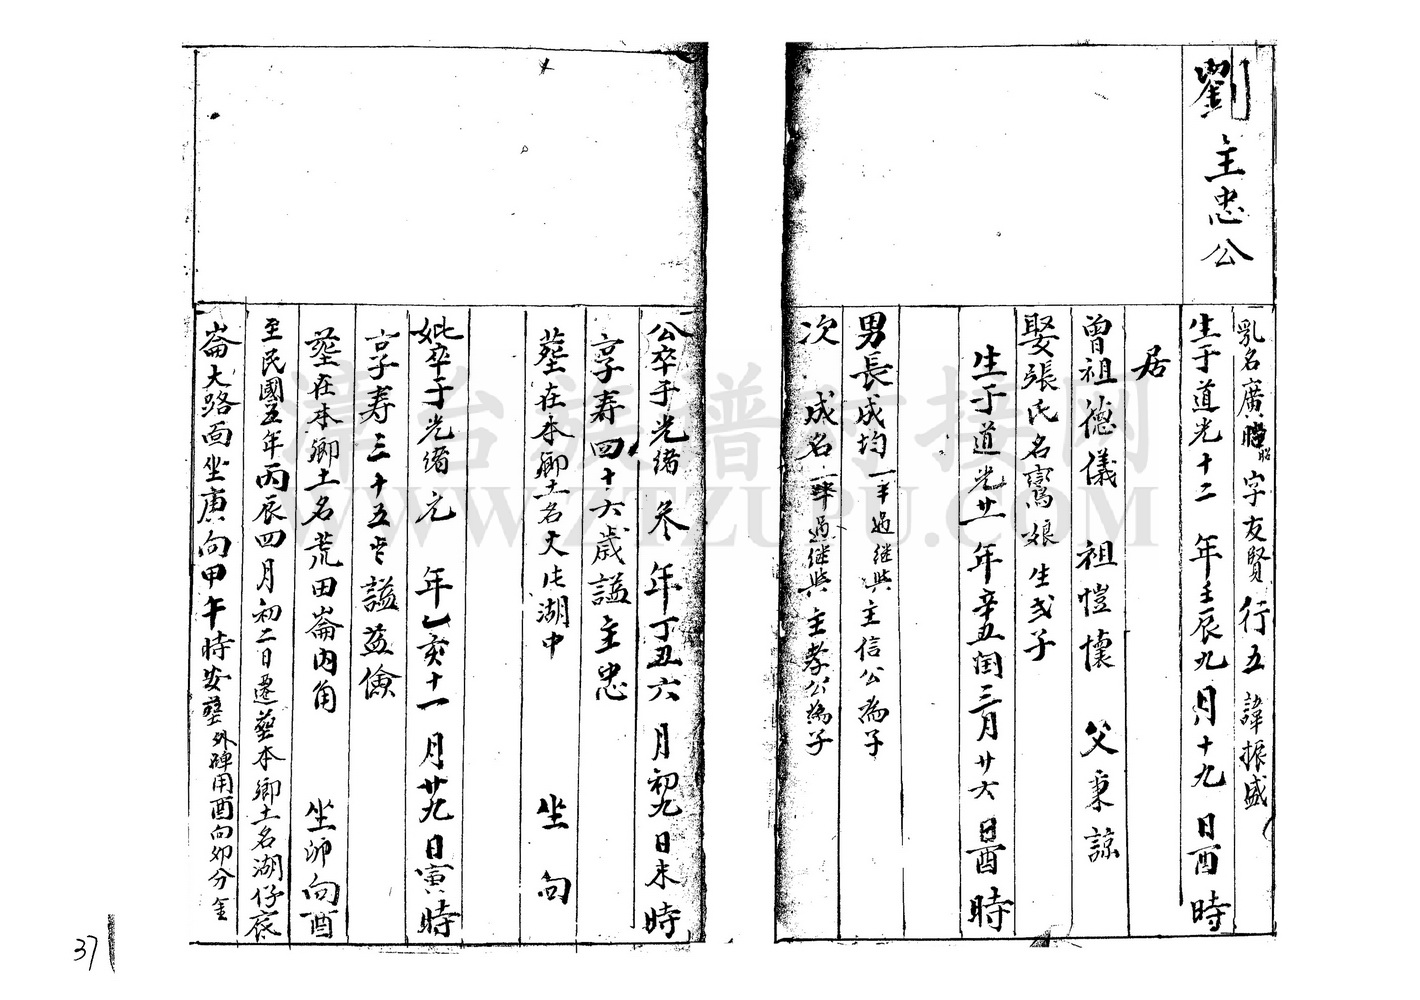 劉主忠公
乳名廣 昭字友賢行五諱振盛
生于道光十二年壬辰九月十九日酉時
居
曾祖德儀祖愷懷父秉諒
娶張氏名鸞娘生弍子
生于道光廿一年辛丑閏三月廿六日酉時
男長成均一半過继與主信公為子
次成名一半過继與主孝公為子
公卒于光緒叄年丁丑六月初九日未時
享寿四十六歲謚主忠
葬在本鄉土名大 湖中坐向
妣卒于光緒元年乙亥十一月廿九日寅時
享寿三十五才謚益儉
葬在本鄉土名荒田崙内角坐卯向酉
至民國五年丙辰四月初二日遷葬本鄉土名湖仔底
崙大路面坐庚向甲午時安葬外碑用酉向卯分金
漳台族谱对接网
WWW.ZTZUPU.COM
37